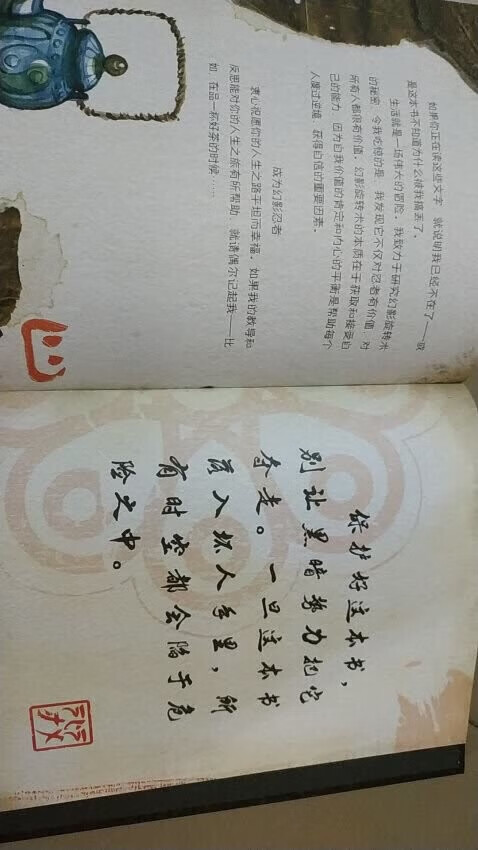 如果你正在读这些文字，就说明我已经不在了——或
是这本书不知道为什么被我搞丢了。
生活就是一场伟大的冒险，我致力于研究幻影旋转术
的秘密。令我吃惊的是，我发现它不仅对忍者有价值，对
所有人都很有价值。幻影旋转术的本质在于获取和接受自
己的能力，因为自我价值的肯定和内心的平衡是帮助每个
人度过逆境、获得自信的重要因素。
成为幻影忍者
衷心祝愿你的人生之路平坦而幸福。如果我的教导和
反思能对你的人生之旅有所帮助，就请偶尔记起我——比
如，在品一杯好茶的时候……
保护好这本书，
别让黑暗势力把它
夺走。一旦这本书
落入坏人手里，所
有时空都会陷于危
险之中。